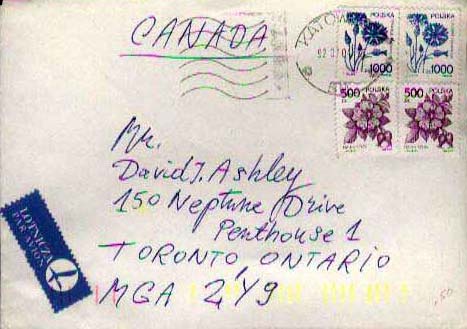 CANADA
KATOWI
92.07.0
POLSKA
1000
POLSKA
1000
500
ZŁ
POLSKA
500
ZŁ
POLSKA
Mr.
David J. Ashley
150 Neptune Drive
Penthouse 1
TORONTO, ONTARIO
MGA 2Y9
LOTNICZA
PAR AVION
.50